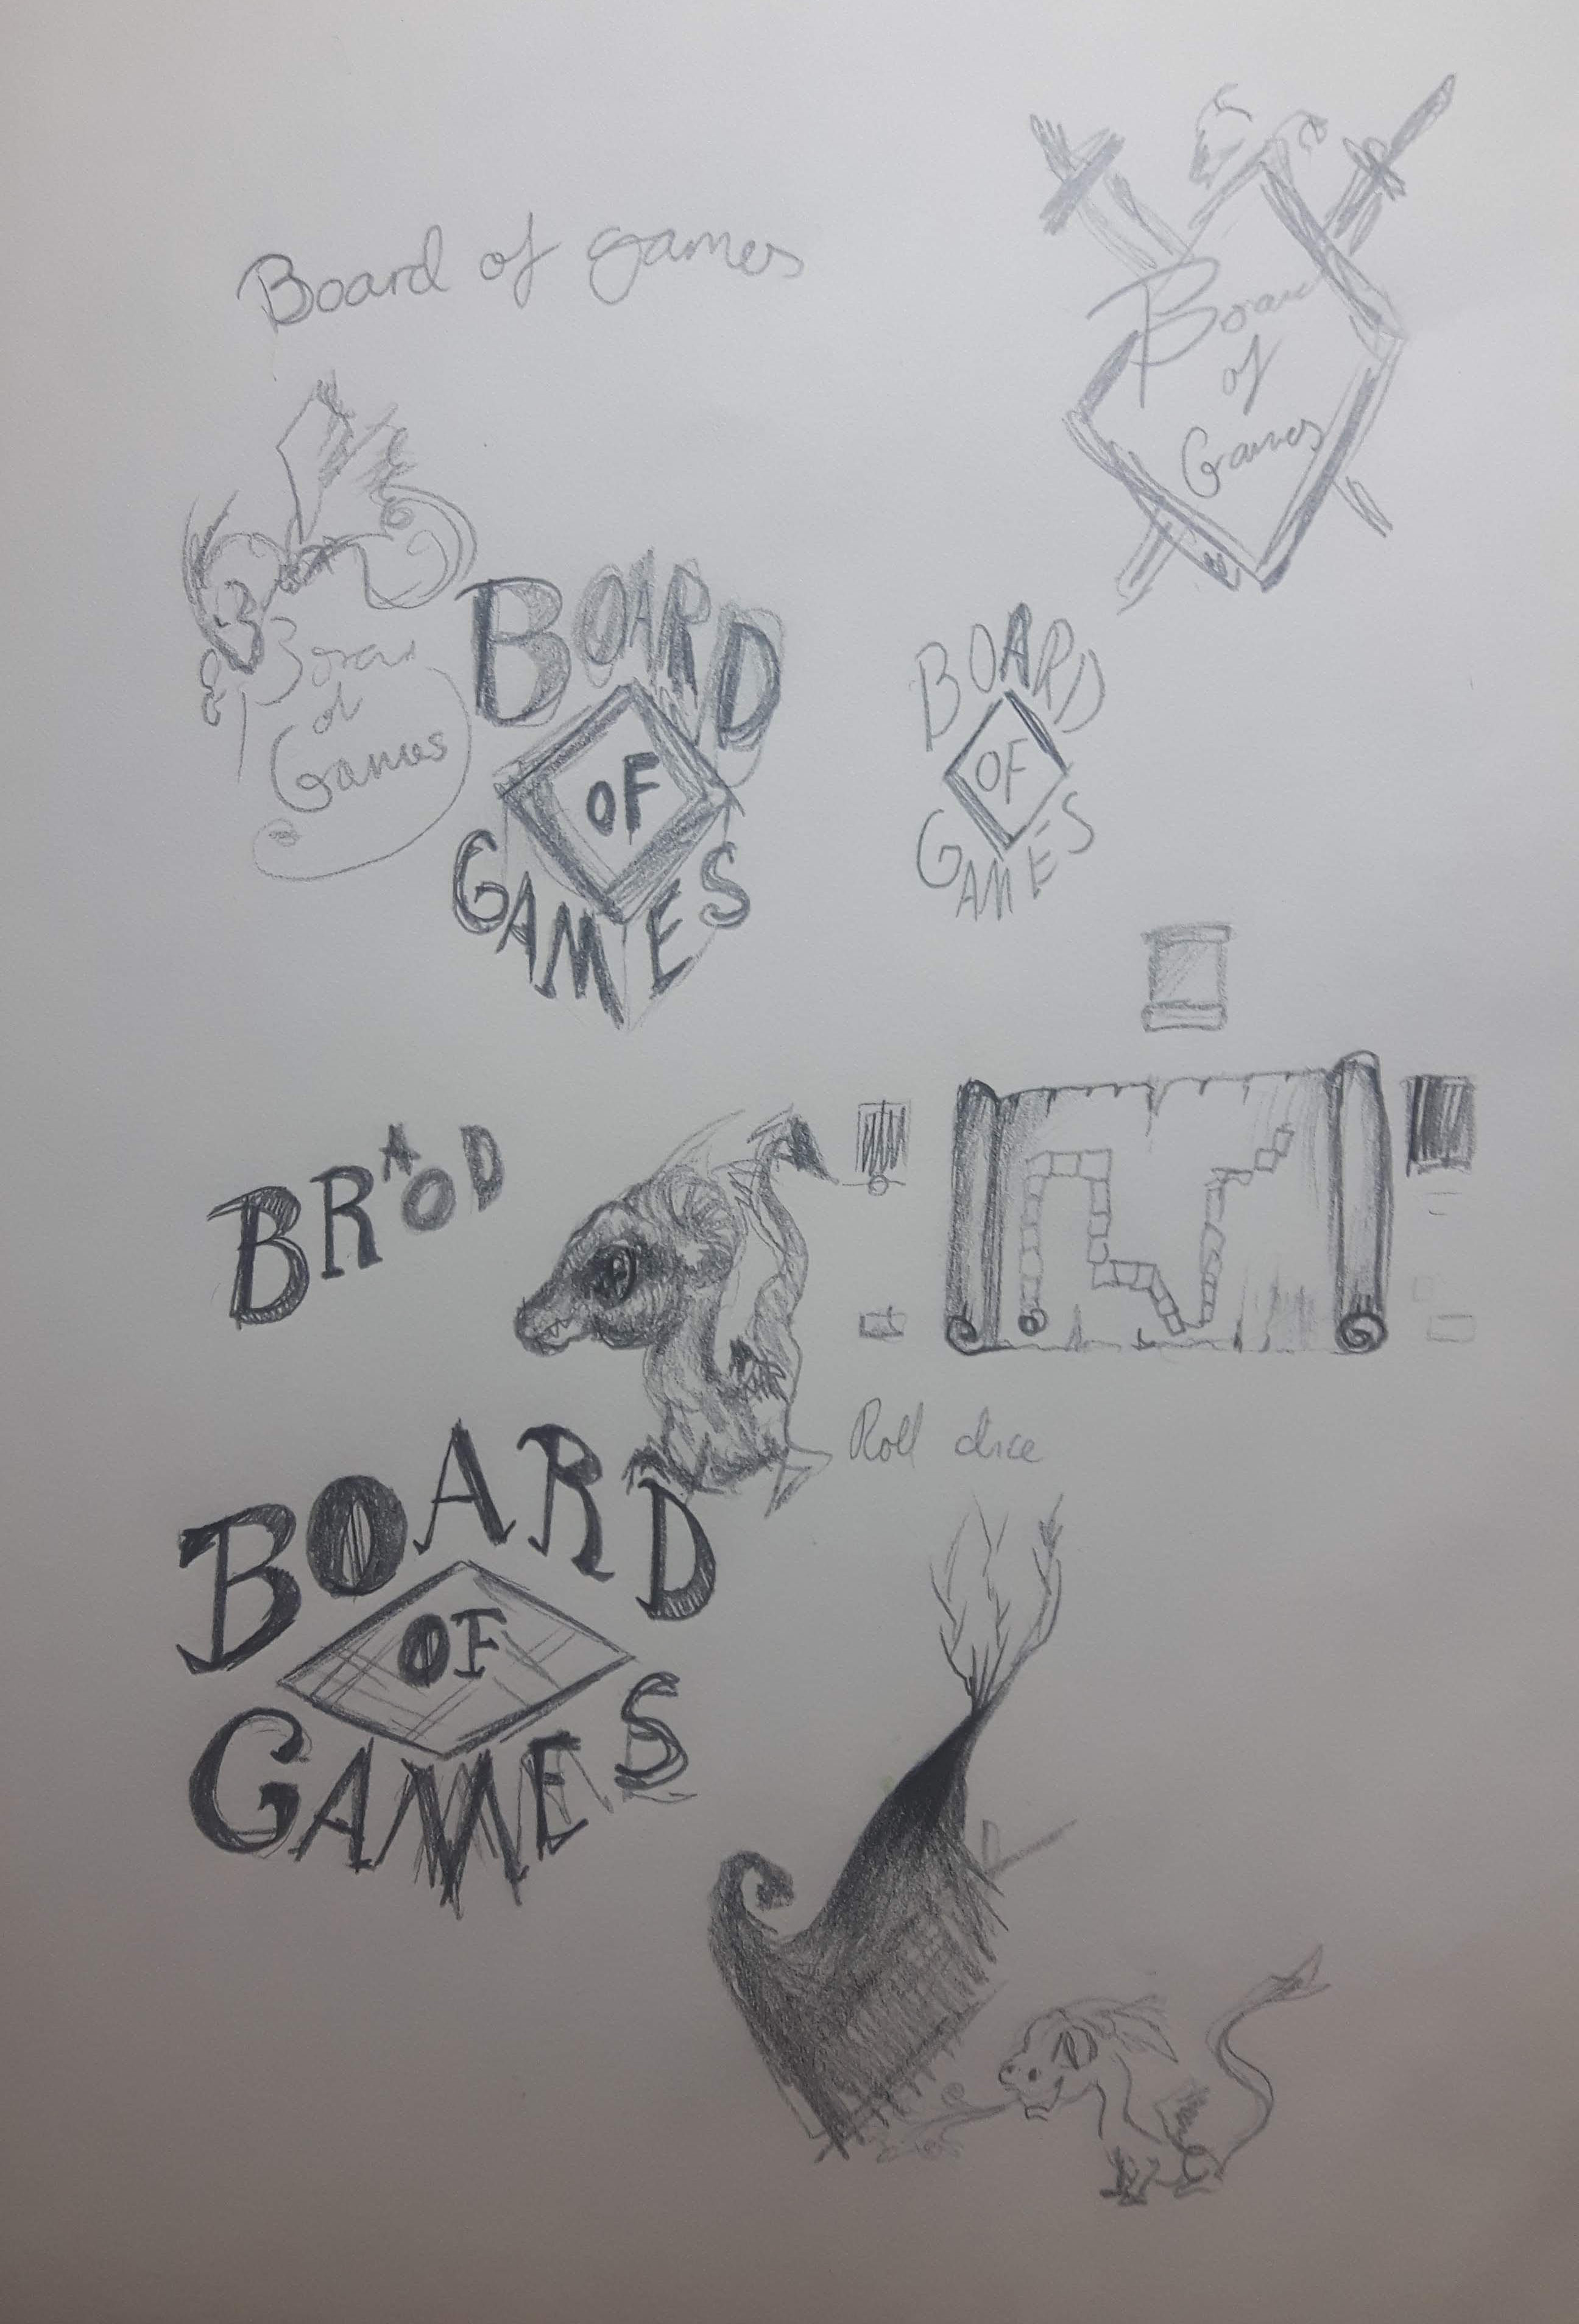 Board of games
Board
of
Games
Board
of
Games
BOARD
OF
GAMES
BOARD
OF
GAMES
BRAOD
Roll dice
BOARD
OF
GAMES